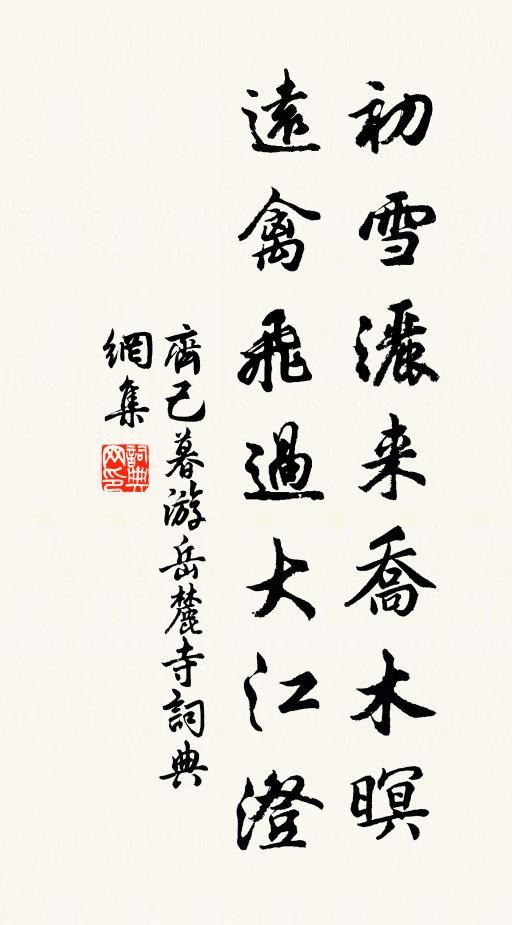 初雪灑来喬木暝
遠禽飛過大江澄
齊己暮游岳麓寺詞典
網集
詞典网印